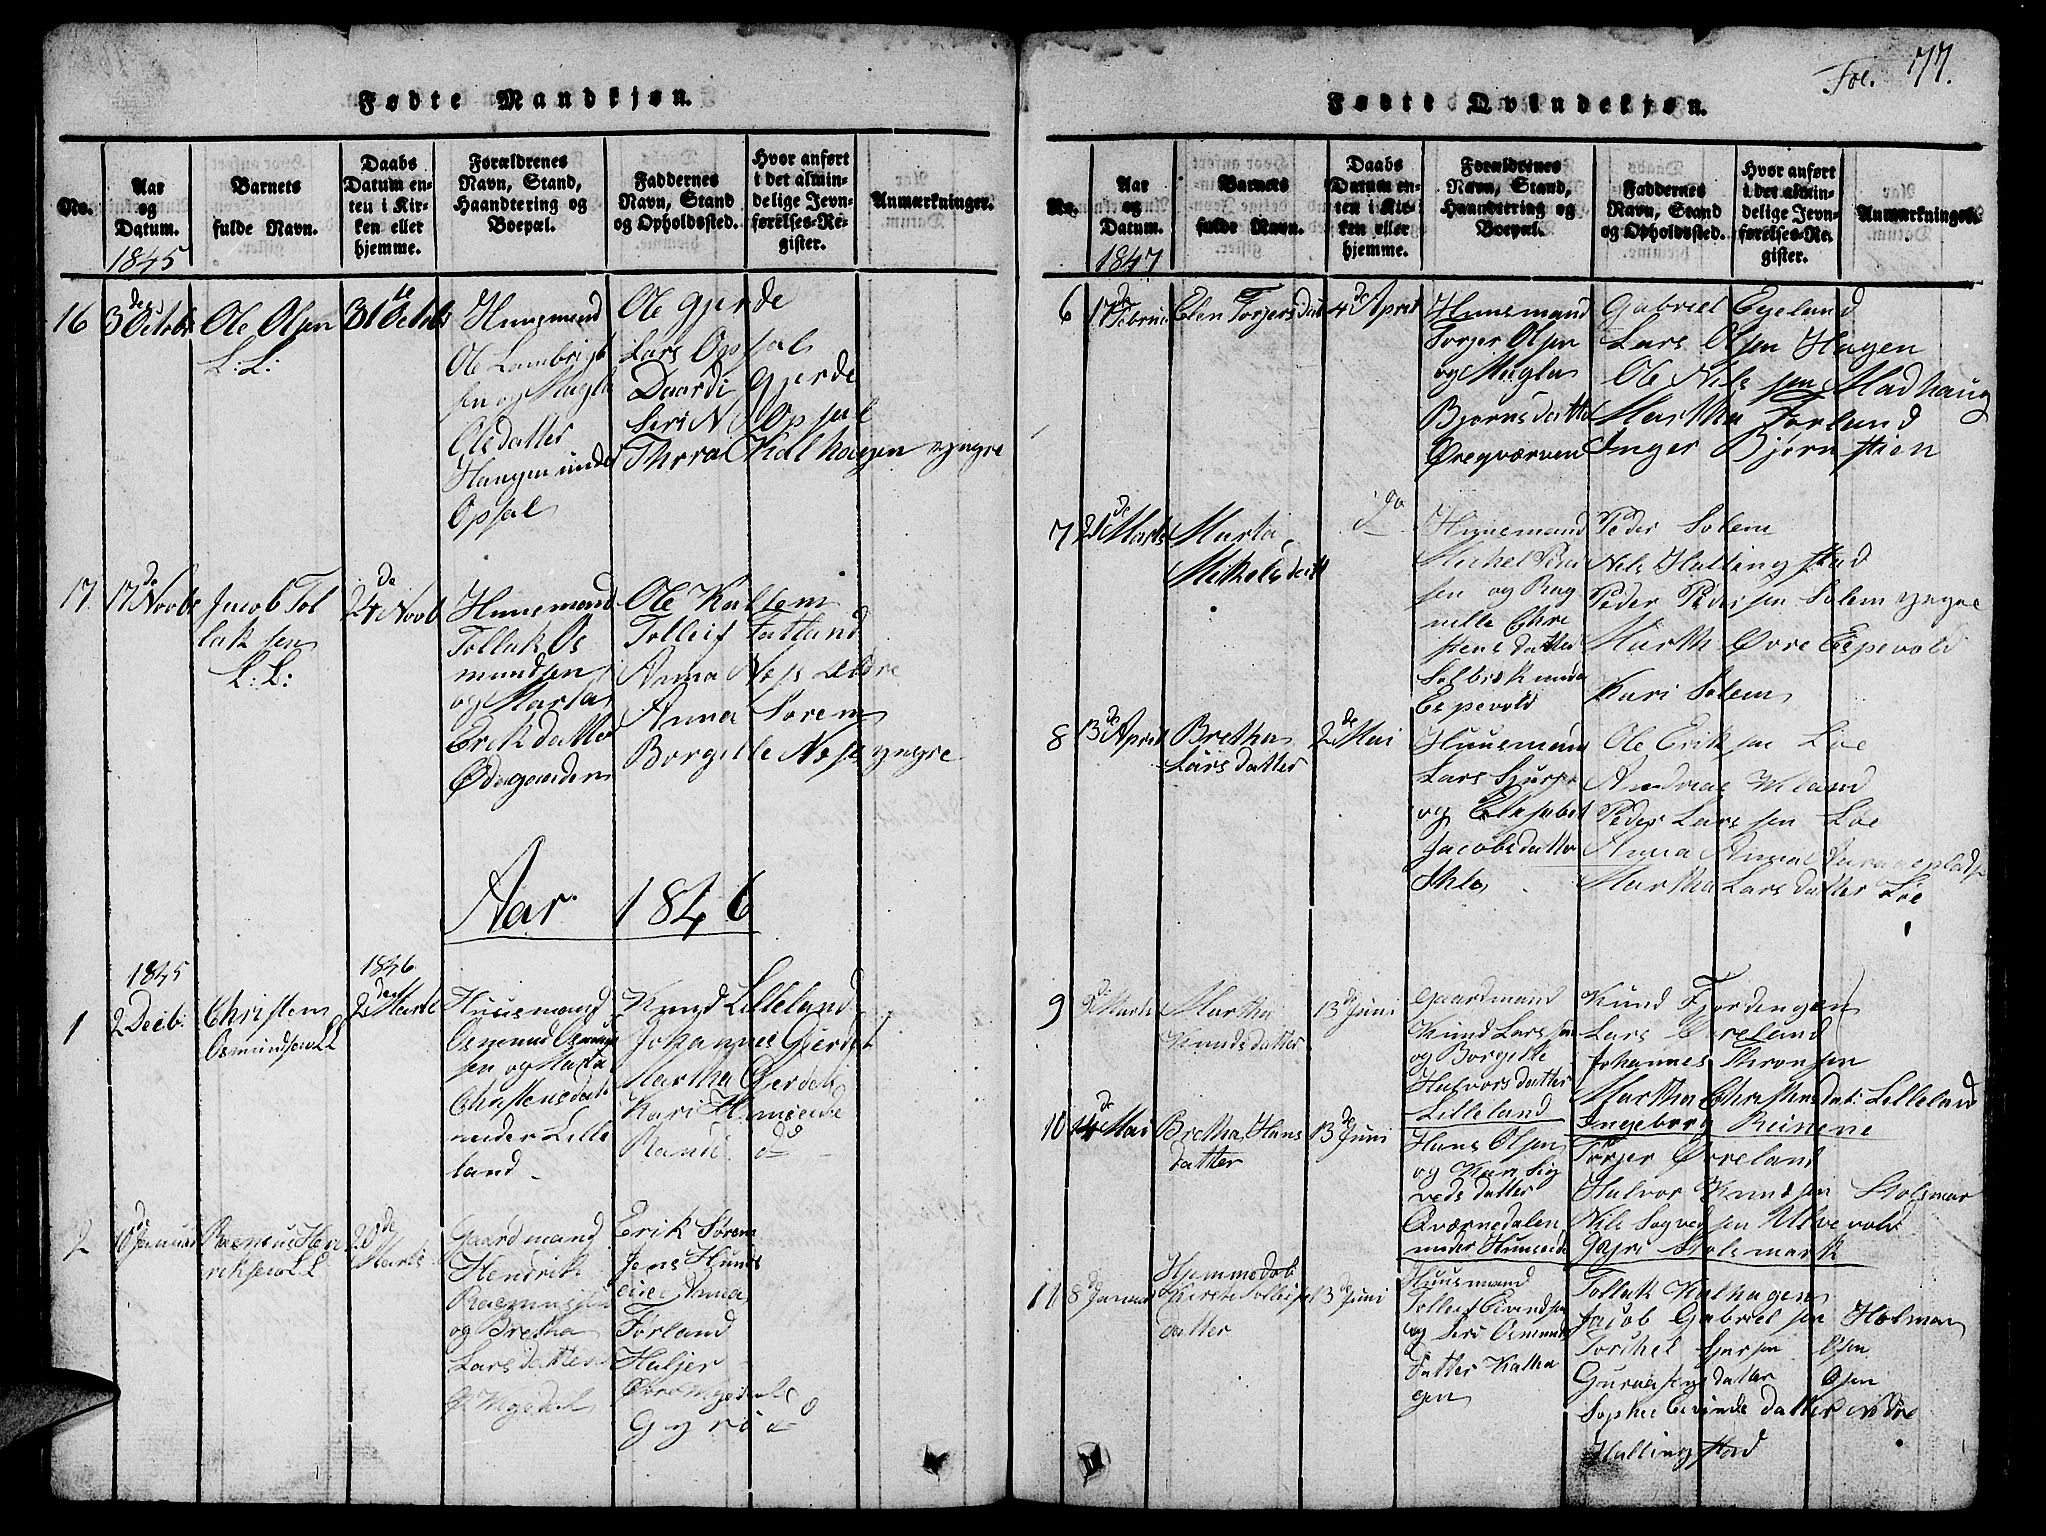 Fødte Mandkjøn.
No.
Aar og Datum.
Barnets fulde Navn.
Daabs Datum enten i Kirken eller hjemme.
Forældrenes Navn, Stand, Haandtering og Boepæl.
Faddernes Navn, Stand og Opholdssted.
Hvor anført i det almindelige Jevnførelses-Register.
Anmærkninger.
1845
16
3 de Octobr
Ole Olsen
L: L:
31 te Octobr
Huusmand
Ole Lambrigt
sen og Magla
Olsdatter
Haugen under
Opsal
Ole Gjerde
Lars Opsal
Daardi Gjerde
Seri N Opsal
Thora Kalhagen yngre
17.
17 de Novbr
Jacob Tol
laksen
L: L:
24 de Novb
Huusmand
Tollak Os
mundsen
og Marta
Erikdatter
Ødegaarden
Ole Kaltem
Tolleif Fatland
Anna Næs ældre
Anna Sørem
Borgille Næs yngre
Aar 1846
1845
1846
1
2 Decb:
Christen
Osmundsen LL
2 den Marts
Huusmand
Osmund Osmund
sen og Marta
Christensdatt
under Lille
land
Knud Lilleland
Johannes Gjerdet
Martha Gjerdet
Kari Hunseide
Rande do
2
10 de Januar
Rasmus Hen
riksen LL
20 de Marts
Gaardmand
Hendrik
Rasmussen
og Bretha
Larsdatter
Erik Sørem
Jens Huns
eide Anna
Førland
Haljer
Gyro do
Fødte Qvindekjøn.
Foe. 77.
No.
Aar og Datum.
Barnets fulde Navn.
Daabs Datum enten i Kirken eller hjemme.
Forældrenes Navn, Stand, Haandtering og Boepæl.
Faddernes Navn, Stand og Opholdssted.
Hvor anført i det almindelige Jevnførelses-Register.
Anmærkninger.
1847
6
17 de Febru
Elen Torjersdat
4 de April
Huusmand
Torjer Olsen
og Magla
Bjørnsdatter
Øregværven
Gabriel Egeland
Lars Olsen Hagen
Ole Nilssen Madhaug
Martha Førland
Inger Bjørnstien
7
21 de Marts
Marta
Mikelsdatt
do
Huusmand
Michel Peder
sen og Rag
nille Chre
stensdatter
Solbisk under
Espevold
Peder Solem
Nels Hallingstad
Peder Pedersen Solem yngre
Marth Øvre Espevold
Kari Solem
8
13 de April
Bretha
Larsdatter
2 de Mai
Huusmand
Lars
og Elisabet
Jacobsdatter
Ole Eriksen Løe
Andreas
Peder Larssen Løe
Anna
Martha Larsdatter Løe
9
Marts
Martha
Knudsdatter
13 de Juni
Gaardmand
Knud Larssen
og Borgille
Halvorsdatter
Lilleland
Knud Fjordengen
Lars Øreland
Johannes Thronsen
Martha Christensdat: Lilleland
Ingeborg Reinene
10
14 de Mai
Bretha Hans
datter
13 de Juni
Hans Olsen
og Kari Sig
vedsdatter
Qværnedalen
under Hunseide
Torjer Øreland
Halvor Knudsen Stolsmar
Nils Sogvedsen Ulvevold
Gyri Stolsmark
11
8 de Januar
Hjemmedøb
datter
13 de Juni
Huusmand
Tolleif Eivindsen
og Seri Osmunds
datter Kalha
gen
Tollak Kalhagen
Jacob Gabrielsen Holman
Torkel Osen
Osen
Sophie Eivindsdatter Nedre
Hallingstad